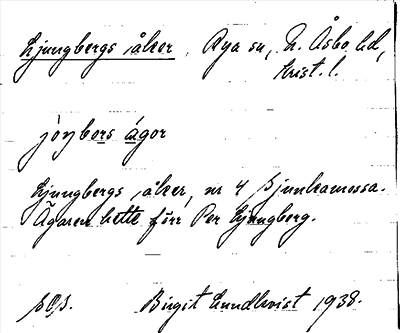 Ljungbergs åker, Rya sn, N. Åsbo hd,
Krist. l.
jòŋbers ágor
Ljungbergs åker, nr 4 Bjunkamossa.
Ägaren hette förr Per Ljungberg.
Birgit Lundkvist 1938.